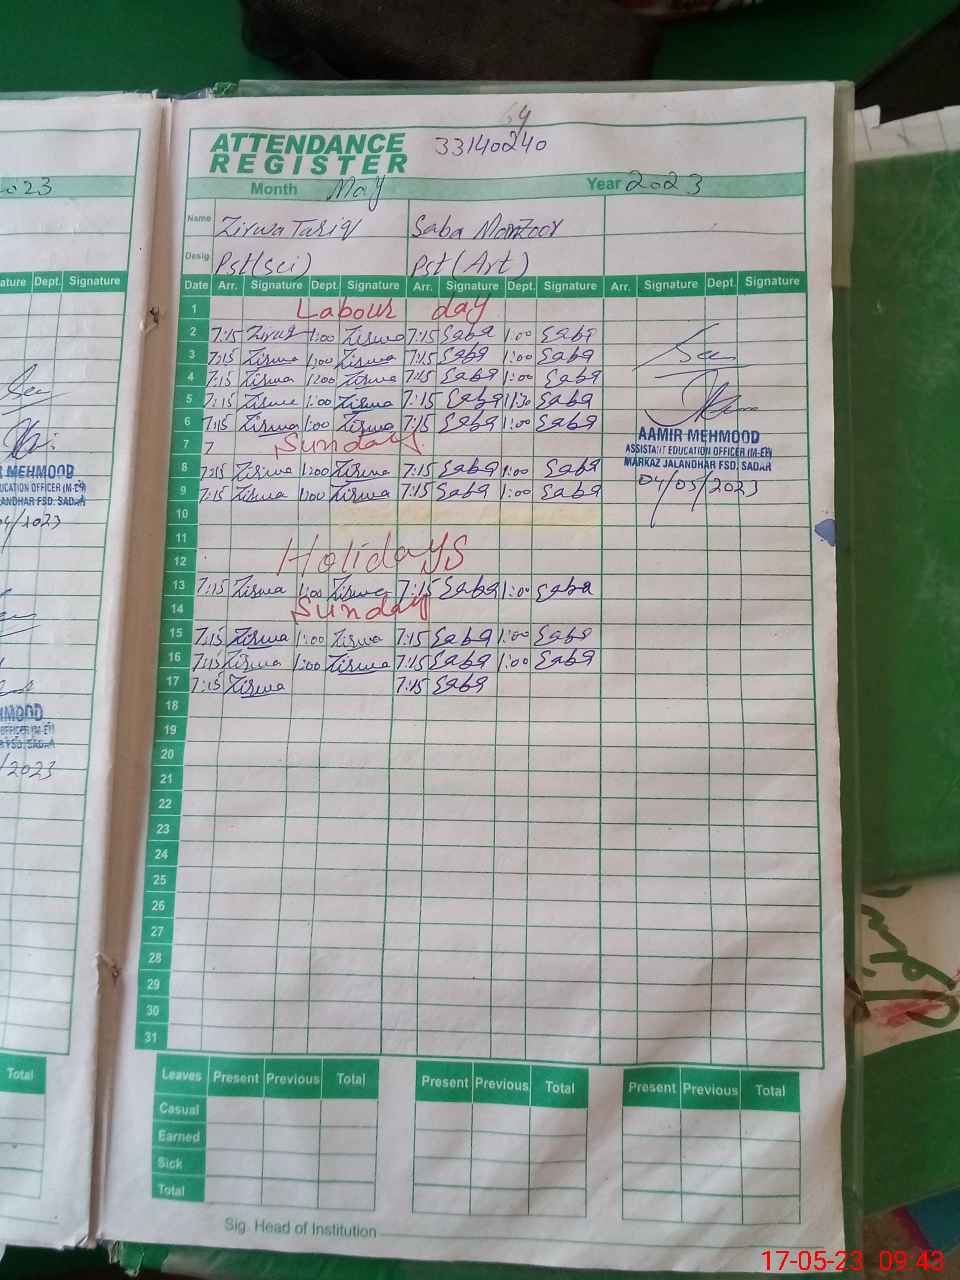 ATTENDANCE
REGISTER
33140240
Month May Year 2023
Name Zirwa Tariq Saba Manzoor
Desig. Pst(sci) Pst(Art)
Date Arr. Signature Dept. Signature Arr. Signature Dept. Signature Arr. Signature Dept. Signature
1 Labour day
2 7:15 Zirwa 1:00 Zirwa 7:15 Saba 1:00 Saba
3 7:15 Zirwa 1:00 Zirwa 7:15 Saba 1:00 Saba
4 7:15 Zirwa 1:00 Zirwa 7:15 Saba 1:00 Saba
5 7:15 Zirwa 1:00 Zirwa 7:15 Saba 11:30 Saba
6 7:15 Zirwa 1:00 Zirwa 7:15 Saba 1:00 Saba
7 7 Sunday
AAMIR MEHMOOD
ASSISTANT EDUCATION OFFICER (M-EE)
MARKAZ JALANDHAR FSD. SADAR
04/05/2023
8 7:15 Zirwa 1:00 Zirwa 7:15 Saba 1:00 Saba
9 7:15 Zirwa 1:00 Zirwa 7:15 Saba 1:00 Saba
10
11
12 Holidays
13 7:15 Zirwa 1:00 Zirwa 7:15 Saba 1:00 Saba
14 Sunday
15 7:15 Zirwa 1:00 Zirwa 7:15 Saba 1:00 Saba
16 7:15 Zirwa 1:00 Zirwa 7:15 Saba 1:00 Saba
17 7:15 Zirwa 7:15 Saba
18
19
20
21
22
23
24
25
26
27
28
29
30
31
Leaves Present Previous Total Present Previous Total Present Previous Total
Casual
Earned
Sick
Total
Sig. Head of Institution
Dept. Signature
MEHMOOD
Total
17-05-23 09:43